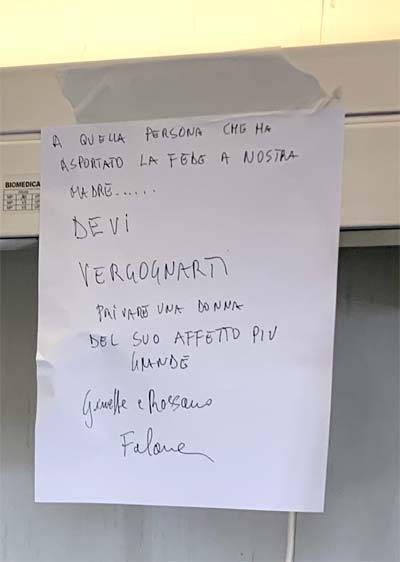 A QUELLA PERSONA CHE HA
ASPORTATO LA FEDE A NOSTRA
MADRE......
DEVI
VERGOGNARTI
PRIVARE UNA DONNA
DEL SUO AFFETTO PIU
GRANDE
e Rossano
BIOMEDICA